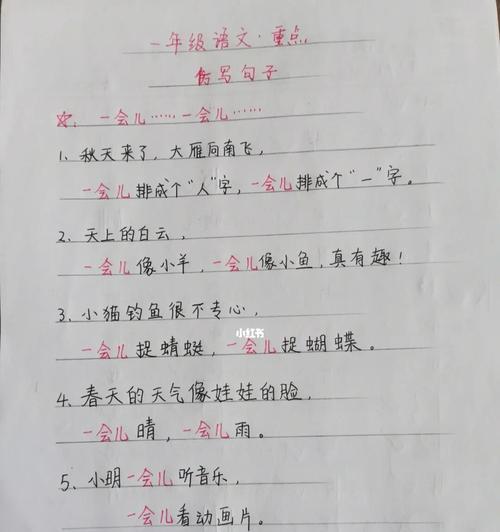 一年级语文·重点
仿写句子
☆：一会儿……一会儿……
1、秋天来了，大雁向南飞，
一会儿排成个“人”字，一会儿排成个“一”字。
2、天上的白云，
一会儿像小羊，一会儿像小鱼，真有趣！
3、小猫钓鱼很不专心，
小红书
一会儿捉蜻蜓，一会儿捉蝴蝶。
4、春天的天气像娃娃的脸，
一会儿晴，一会儿雨。
5、小明一会儿听音乐，
一会儿看动画片。